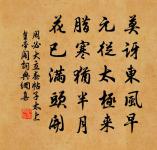 莫訝東風早
元從太極來
臘寒猶半月
花已滿頭開
周必大立春帖子太上
皇帝閣詞典網集